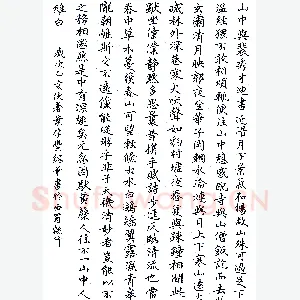 山中與裴秀才迪書 近臘月下景氣和暢故山殊可過足下
溫經猥不敢相煩輒便往山中憩感配寺與山僧飯訖而去北
玄灞清月映郭夜登華子岡輞水淪漣與月上下寒山遠火
滅林外深巷寒犬吠聲如豹村墟夜舂復與疎鐘相間此
獨坐僮僕靜默多思曩昔攜手賦詩步仄逕臨清流也當
春中草木蔓發春山可望輕鯈出水白鷗矯翼露濕青皋
隴朝雊斯之不遠儻能從我遊乎非子天機清妙者豈能以不
之務相邀然是中有深趣矣無忽因馱黃蘗人往不一山中人
維白 歲次乙亥